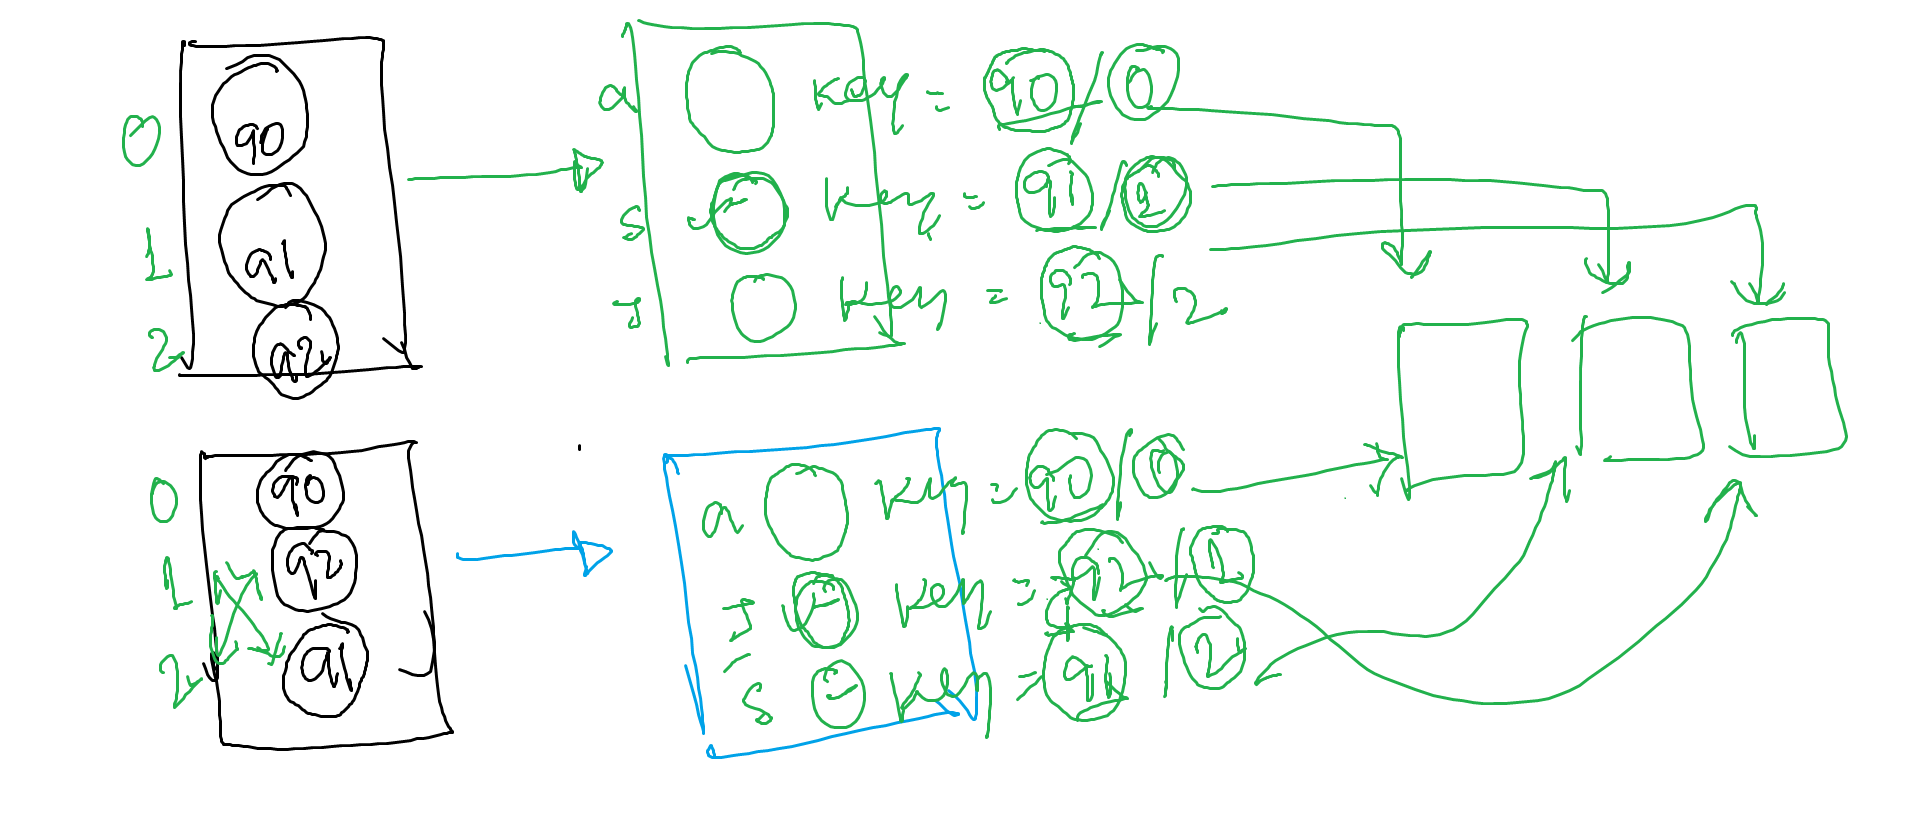 0
90
1
91
2
92
a
key = 90 / 0
s
key = 91 / 2
J
key = 92 / 2
0
90
1
92
2
91
a
key = 90 / 0
J
key = 92 / 1
s
key = 91 / 2